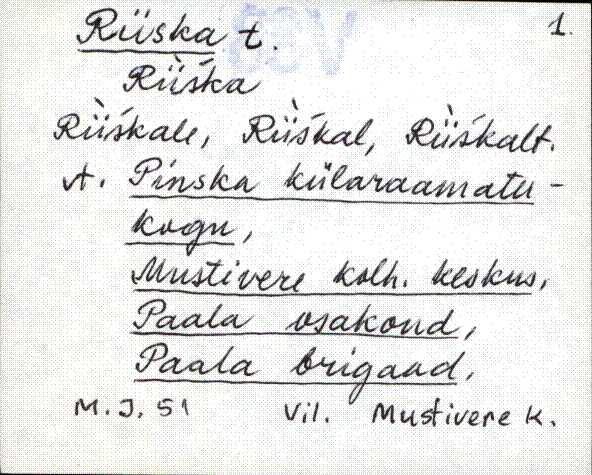 Riiska t. 1.
Rììśka
Rììśkale, Rììśkal, Rììśkalt.
vt. Pinska külaraamatu-
kogu,
Mustivere kolh. keskus,
Paala osakond,
Paala brigaad.
M.J. 51 Vil. Mustivere k.